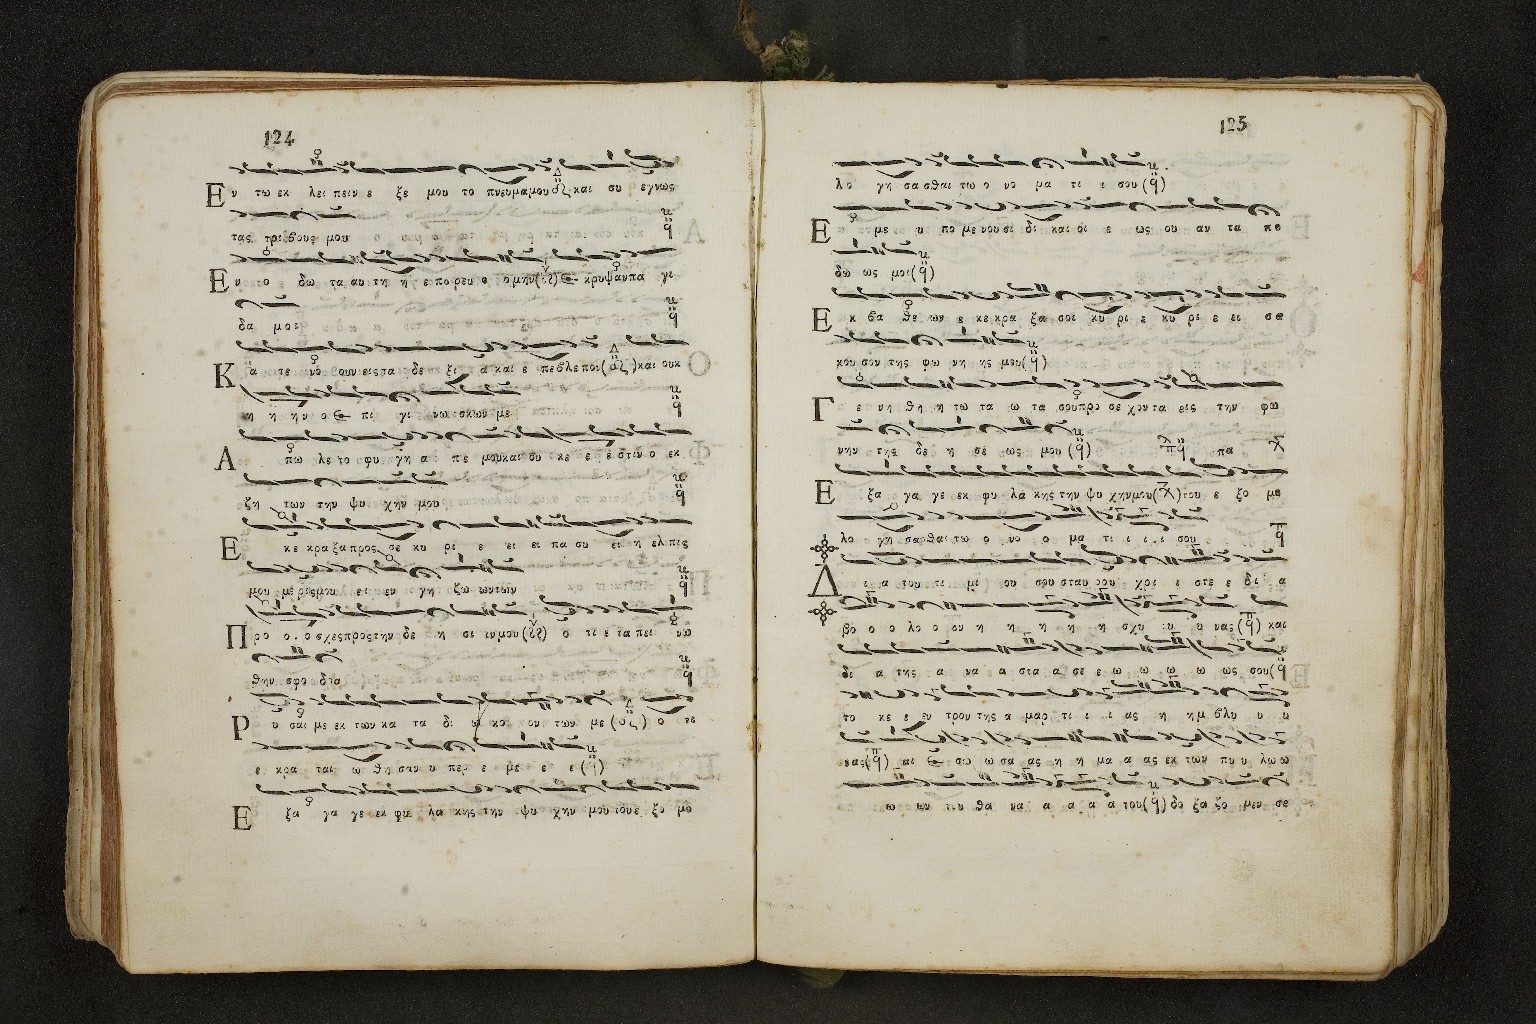 124
Εν τω εκ λει πειν ε ξε μου το πνευμα μου και συ εγνως
τας τριβους μου
Εν ο δω ταυ τη η ε πο ρευ ο ο μην εκρυψαν πα γι
δα μοι
Κα τε νο ουν εις τα δε ξι α και ε πε βλε πον και ουκ
η η ην ο ε πι γι νω σκων με
Α πω λε το φυ γη α π ε μου και ου κ ε ε ε στιν ο εκ
ζη των την ψυ χην μου
Ε κε κρα ξα προς σε κυ ρι ε ει ει πα συ ει η ελ πις
μου με ρις μου ει εν γη ζω ωντων
Προ ο ο σχες προς την δε η σι ιν μου ο τι ε τα πει νω
θην σφο δρα
Ρυ σαι με εκ των κα τα δι ω κο ον των με ο τι
ε κρα ται ω θη σαν υ περ ε με ε ε
Ε ξα γα γε εκ φυ λα κης την ψυ χην μου του ε ξο μο
125
λο γη σασθαι τω ο νο μα τι ι σου
Ε με υ πο με νου σι δι και οι ε ως ου αν τα πο
δω ως μοι
Εκ βα θε ων ε κε κρα ξα σοι κυ ρι ε κυ ρι ε ει σα
κου σον της φω νη ης μου
Γε νη θη η τω τα ω τα σου προ σε χον τα εις την φω
νην της δε η σε ως μου πα
Ε ξα γα γε εκ φυ λα κης την ψυ χην μου του ε ξο μο
λο γη σασθαι τω ο νο ο μα τι ι ι ι σου
Δι α του τι μι ου σου σταυ ρου χρι ι στε ε δι α
βο ο ο λο ο ον η η η η η σχυ υ υ νας και
δι α της α να α στα α σε ε ω ω ω ω ως σου
το κε ε εν τρον της α μαρ τι ι ι ας η ημ βλυ υ υ
νας και ε σω ω σα ας η η μα α ας εκ των πυ υ λω ω
ω ων του θα να α α α α του δο ξα ζο μεν σε